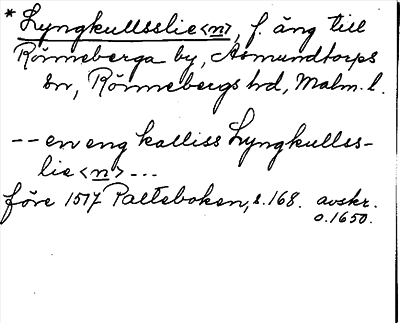 * Lyngkullsslie<n>, f. äng till
Rönneberga by, Asmundtorps
sn, Rönnebergs hd, Malm. l.
-- en eng kalliss Lyngkullss-
lie <n> ---
före 1517 Palteboken, s. 168. avskr.
o. 1650.